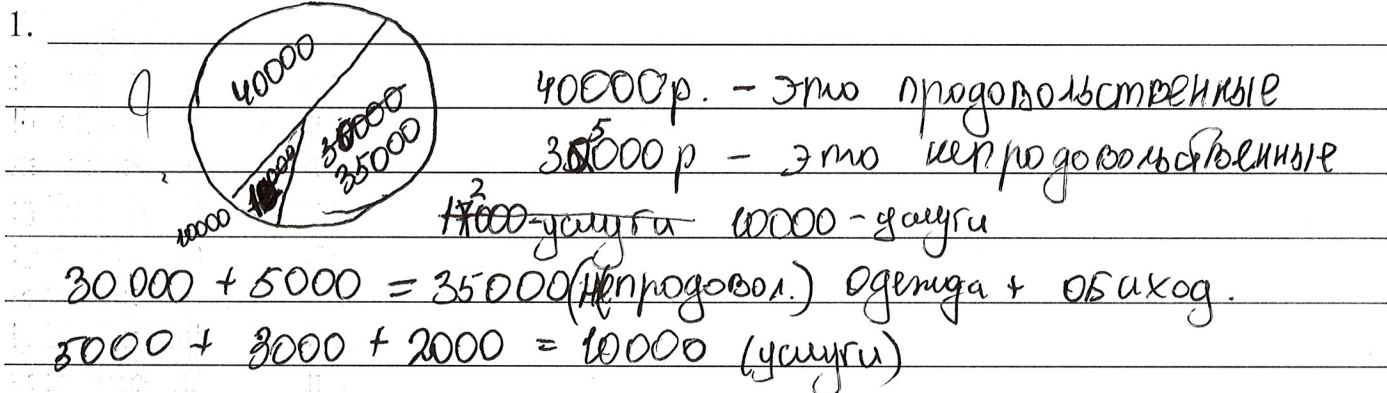 1.
40000
30000
35000
10000
40000р. – это продовольственные
35000р – это непродовольственные
12000-услуги 10000-услуги
30 000 + 5000 = 35000(непродовол.) Одежда + обиход.
5000 + 3000 + 2000 = 10000 (услуги)